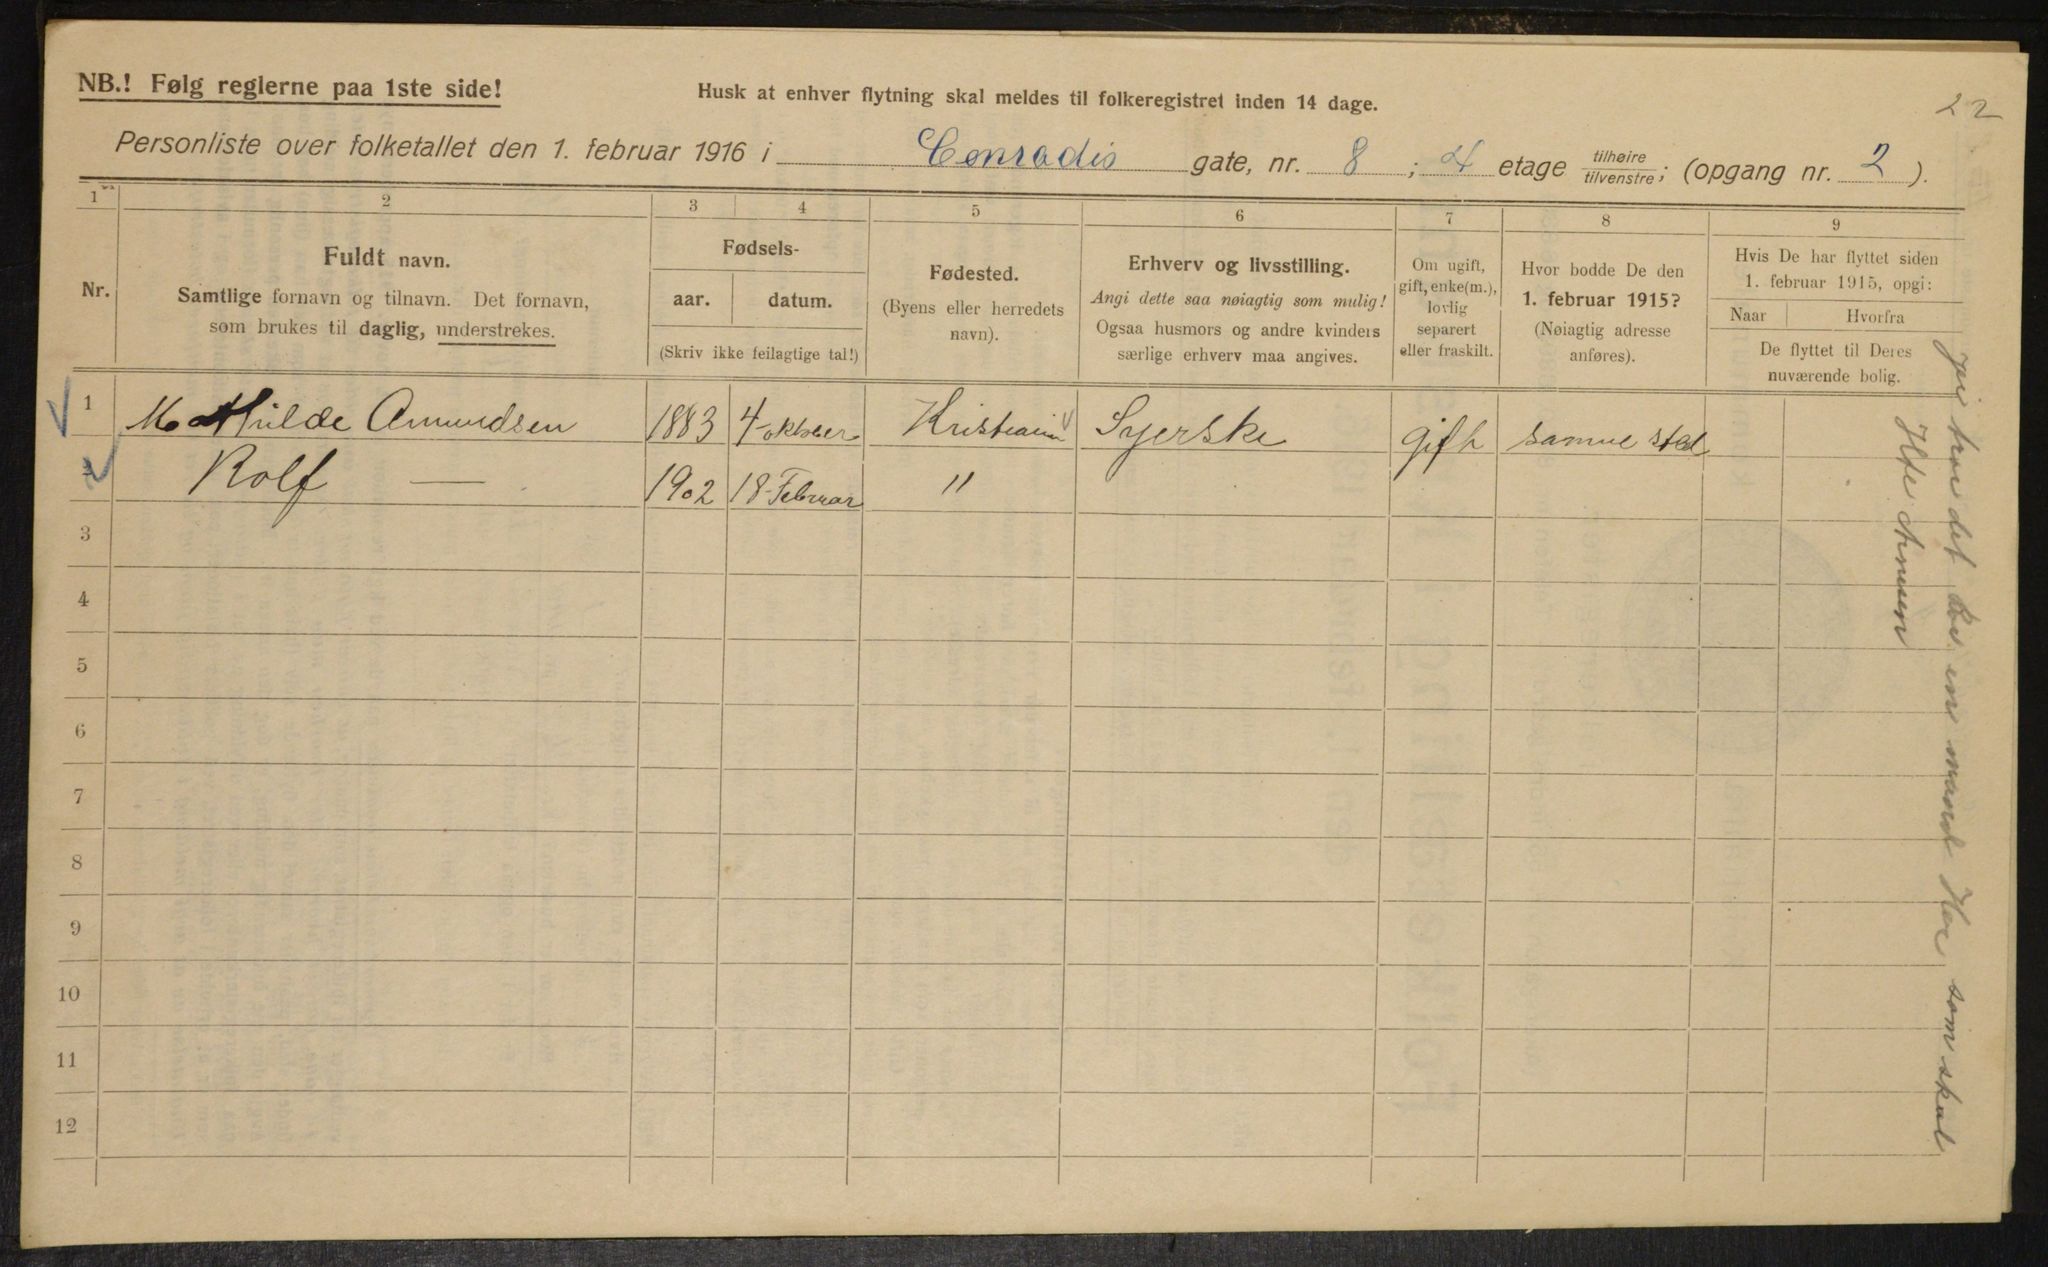 22
NB.! Følg reglerne paa 1ste side!
Husk at enhver flytning skal meldes til folkeregistret inden 14 dage.
Personliste over folketallet den 1. februar 1916 i Conradis gate, nr. 8 ; 4 etage tilhøire / tilvenstre ; (opgang nr. 2 ).
1 2 3 4 5 6 7 8 9
Nr.
Fuldt navn.
Samtlige fornavn og tilnavn. Det fornavn,
som brukes til daglig, understrekes.
Fødsels-
aar. datum.
(Skriv ikke feilagtige tal!)
Fødested.
(Byens eller herredets
navn).
Erhverv og livsstilling.
Angi dette saa nøiagtig som mulig!
Ogsaa husmors og andre kvinders
særlige erhverv maa angives.
Om ugift,
gift, enke(m.),
lovlig
separert
eller fraskilt.
Hvor bodde De den
1. februar 1915?
(Nøiagtig adresse
anføres).
Hvis De har flyttet siden
1. februar 1915, opgi:
Naar Hvorfra
De flyttet til Deres
nuværende bolig.
1 Mathilde Amundsen 1883 4 oktober Kristiania Syerske gift samme sted
2 Rolf — 1902 18 Februar "
3
4
5
6
7
8
9
10
11
12
tror det bor en mand Her som skal